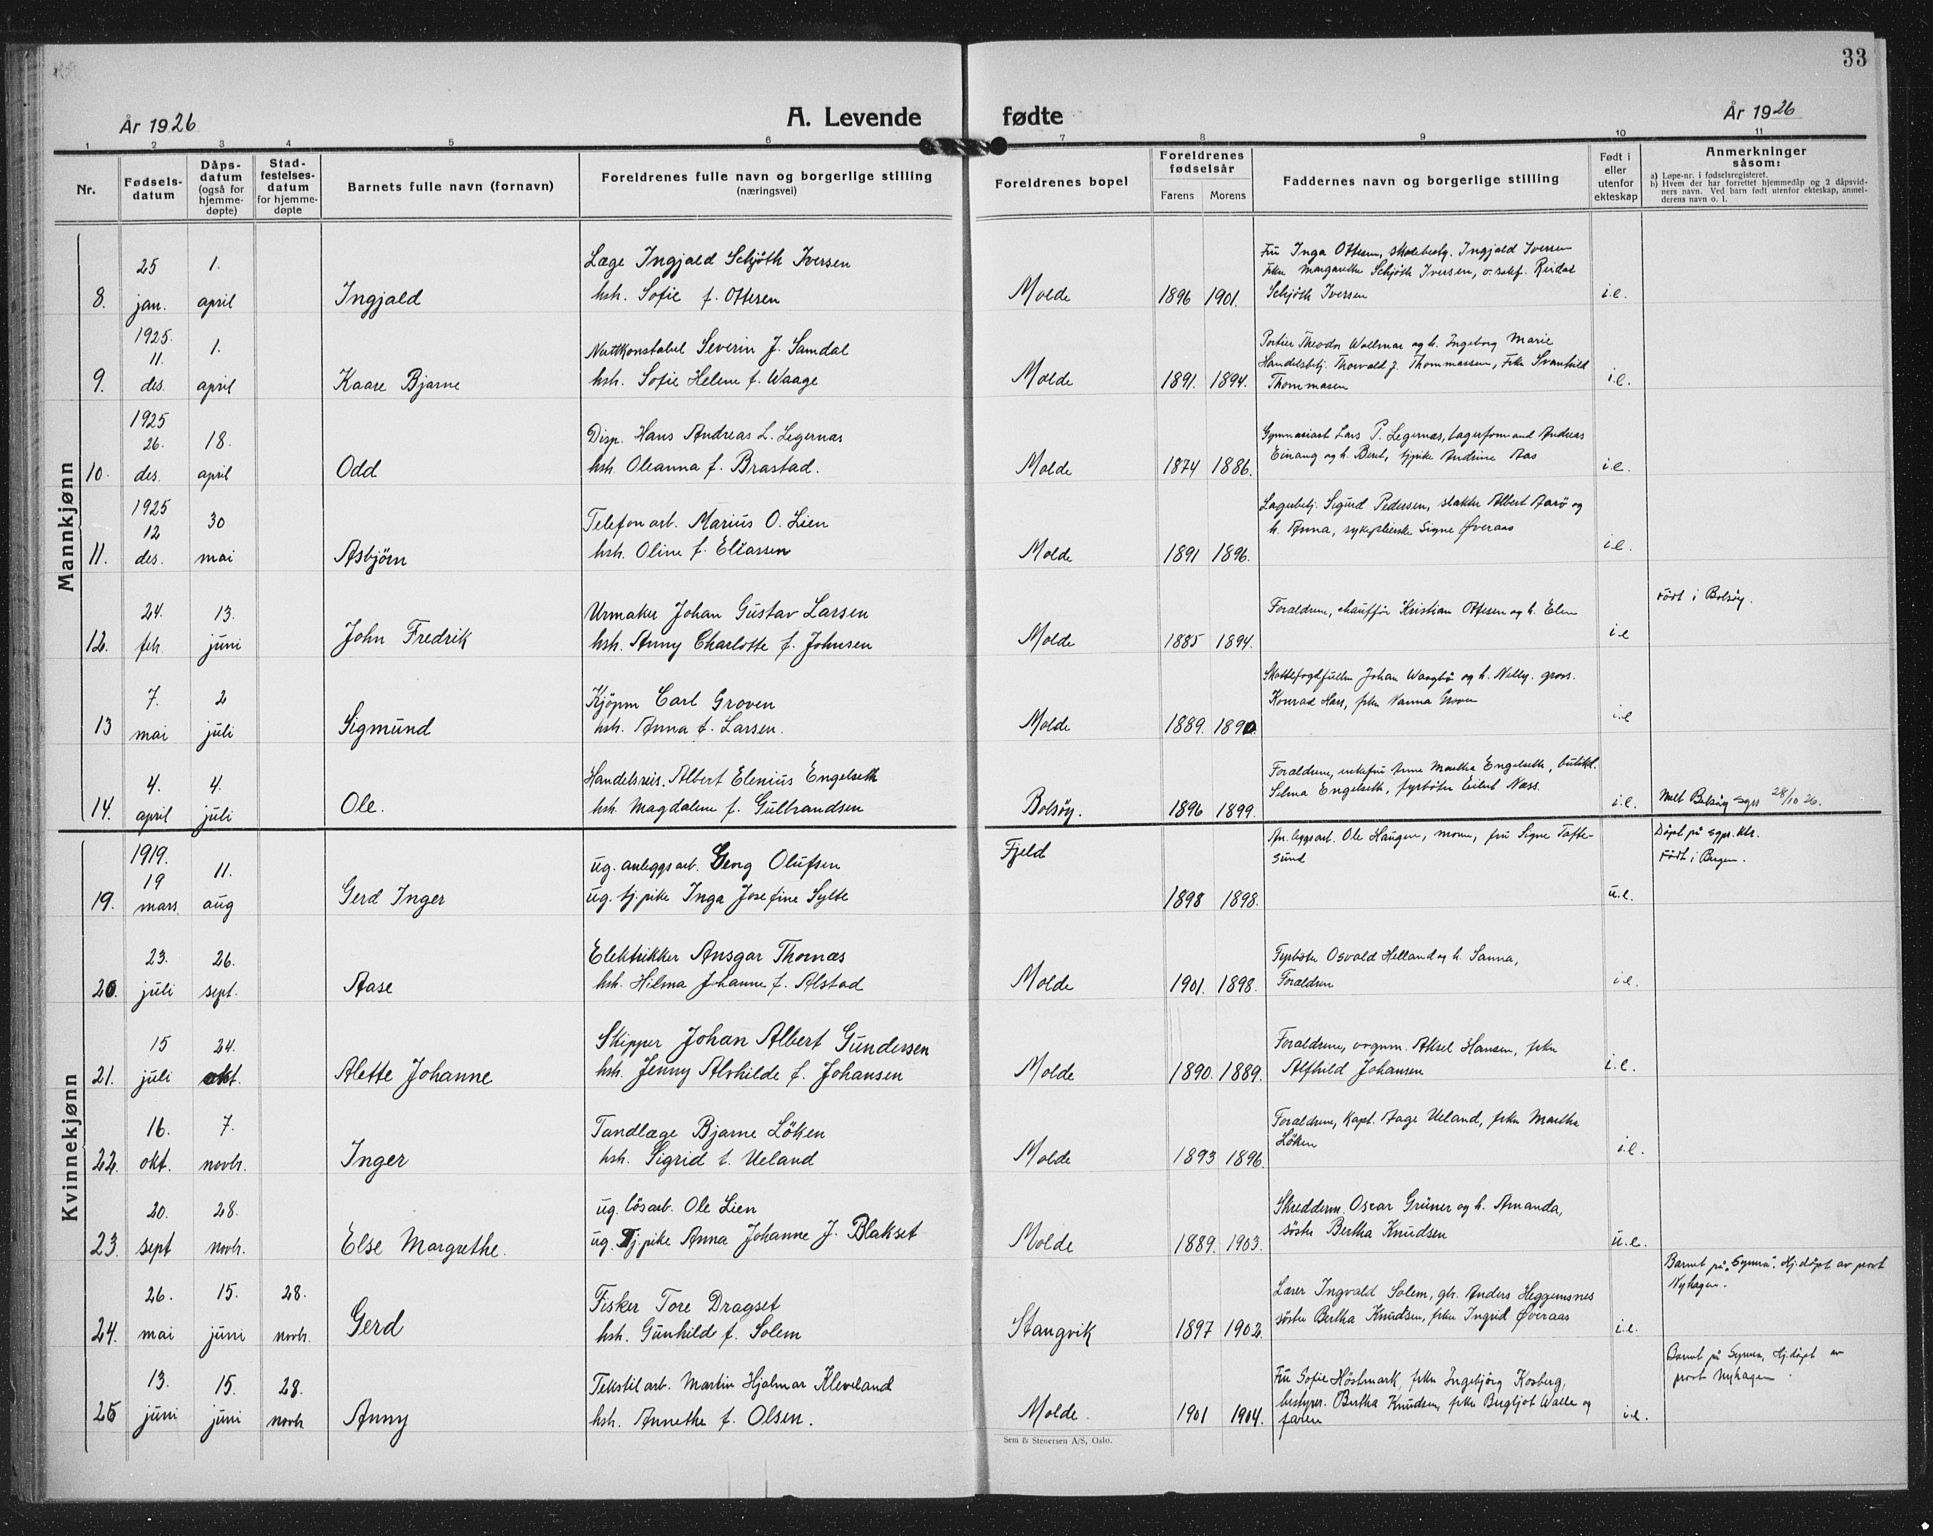 33
År 1926
A. Levende fødte
År 1926
1 2 3 4 5 6 7 8 9 10 11
Nr.
Fødsels-
datum
Dåps-
datum
(også for
hjemme-
døpte)
Stad-
festelses-
datum
for hjemme-
døpte
Barnets fulle navn (fornavn)
Foreldrenes fulle navn og borgerlige stilling
(næringsvei)
Foreldrenes bopel
Foreldrenes
fødselsår
Farens Morens
Faddernes navn og borgerlige stilling
Født i
eller
utenfor
ekteskap
Anmerkninger
såsom:
a) Løpe-nr. i fødselsregisteret.
b) Hvem der har forrettet hjemmedåp og 2 dåpsvid-
ners navn. Ved barn født utenfor ekteskap, anmel-
derens navn o. l.
Mannkjønn
8. 25 jan. 1. april Ingjald
Læge Ingjald Schjøth Iversen
hsh. Sofie f. Ottesen
Molde 1896 1901.
Fru Inga Ottesen, skolebestg. Ingjald Iversen
Frkn Margarethe Schjøth Iversen, Reidar
Schjøth Iversen
i.e.
9. 1925. 11. des. 1. april Kaare Bjarne
Nattkonstabel Severin J. Samdal
hsh. Sofie Helene f. Waage
Molde 1891. 1894.
Portier Theodor Wollmar og h. Ingeborg Marie
Handelsbetj. Thorvald J. Thommassen, Frkn Svanhild
Thommasen
i.e.
10. 1925 26. des. 18. april Odd
Disp. Hans Andreas L. Legernæs
hsh. Oleanna f. Brastad.
Molde 1874 1886.
Gymnasiast Lars P. Legernæs, lagerformand Andreas
Einang og h. Berit, tjpike Andrine Aas
i.e.
11. 1925 12 des. 30 mai Asbjørn
Telefonarb. Marius O. Lien
hsh. Oline f. Eliassen
Molde 1891 1896.
Lagerbetj. Sigurd Pedersen, slakter Albert Aarø og
h. Anna, sykepleierske Signe Øveraas
i.e.
12. 24. feb. 13. juni John Fredrik
Urmaker Johan Gustav Larsen
hsh. Anny Charlotte f. Johnsen
Molde 1885 1894.
Foraldrene, chauffør Kristian Ottesen og h. Elen
i.e
Født i Bolsøy.
13 7. mai 2 juli Sigmund
Kjöpm Carl Groven
hsh. Anna f. Larsen.
Molde 1889. 1890.
Skattefogdfullm Johan Wangbø og h. Nelly. gross.
Konrad Hass, frkn Nanna Groven
i.e
14. 4. april 4. juli Ole.
Handelsreis. Albert Elenius Engelseth
hsh. Magdalene f. Gulbrandsen
Bolsøy. 1896 1899.
Foraldrene, enkefru Anne Martha Engelseth, butikd.
Selma Engelseth, fyrbøter Eilert Næss.
i.e.
Melt Bolsøy sgps 28/10 26.
Kvinnekjønn
19. 1919. 19 mars. 11. aug Gerd Inger
ug. anleggsarb. Georg Olufsen
ug. tj.pike Inga Josefine Sylte
Fjeld 1898 1898.
An.leggsarb. Ole Haugen, moren, fru Signe Tofte-
sund
u.e.
Døpt på sgps. ktr.
Født i Bergen.
20. 23. juli 26. sept. Aase
Elektrikker Ansgar Thomæs
hsh. Hilma Johanne f. Alstad
Molde 1901. 1898.
Fyrbøter Osvald Helland og h. Sanna,
Foraldrene
i.e.
21. 15 juli 24. okt. Alette Johanne
Skipper Johan Albert Gundersen
hsh. Jenny Alvhilde f. Johansen
Molde 1890. 1889.
Foraldrene, vognm. Aksel Hansen, frkn
Alfhild Johansen
i.e.
22. 16. okt. 7. novbr. Inger
Tandlæge Bjarne Löken
hsh. Sigrid f. Ueland
Molde 1893 1896.
Foraldrene, kapt. Aage Ueland, frkn Martha
Löken
i.e.
23. 20. sept 28. novbr. Else Margrethe.
ug. løsarb. Ole Lien
ug. Tjpike Anna Johanne J. Blakset
Molde 1889. 1903.
Skredderm. Oscar Grüner og h. Amanda,
søster Bertha Knudsen
u.e.
24. 26. mai 15. juni 28. novbr. Gerd
Fisker Tore Dragset
hsh. Gunhilde f. Solem
Stangvik 1897 1902.
Lærer Ingvald Solem, gb. Anders Heggemsnes
søster Bertha Knudsen, frkn Ingrid Øveraas
i.e.
Barnet på "Symra". Hj.døpt av prost
Nyhagen.
25 13. juni 15. juni 28. novbr Anny
Tekstilarb. Martin Hjalmar Kleveland
hsh. Annethe f. Olsen.
Molde. 1901 1904.
Fru Sofie Höstmark, frkn Ingebjörg Kosberg,
bestyrer. Bertha Knudsen, frkn Bergljot Walle og
faren
i.e.
Barnet på Symra, Hj.døpt av
prost Nyhagen.
Sem & Stenersen A/S, Oslo.